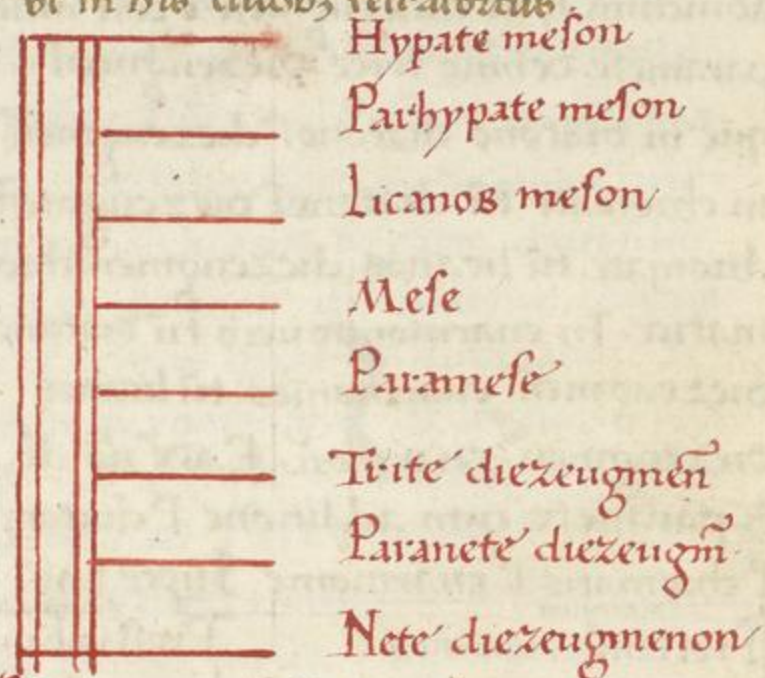 vt in his duobꝫ tetrachordis
Hypate meson
Parhypate meson
Licanos meson
Mese
Paramese
Trite diezeugmen̄
Paranete diezeugm̄
Nete diezeugmenon